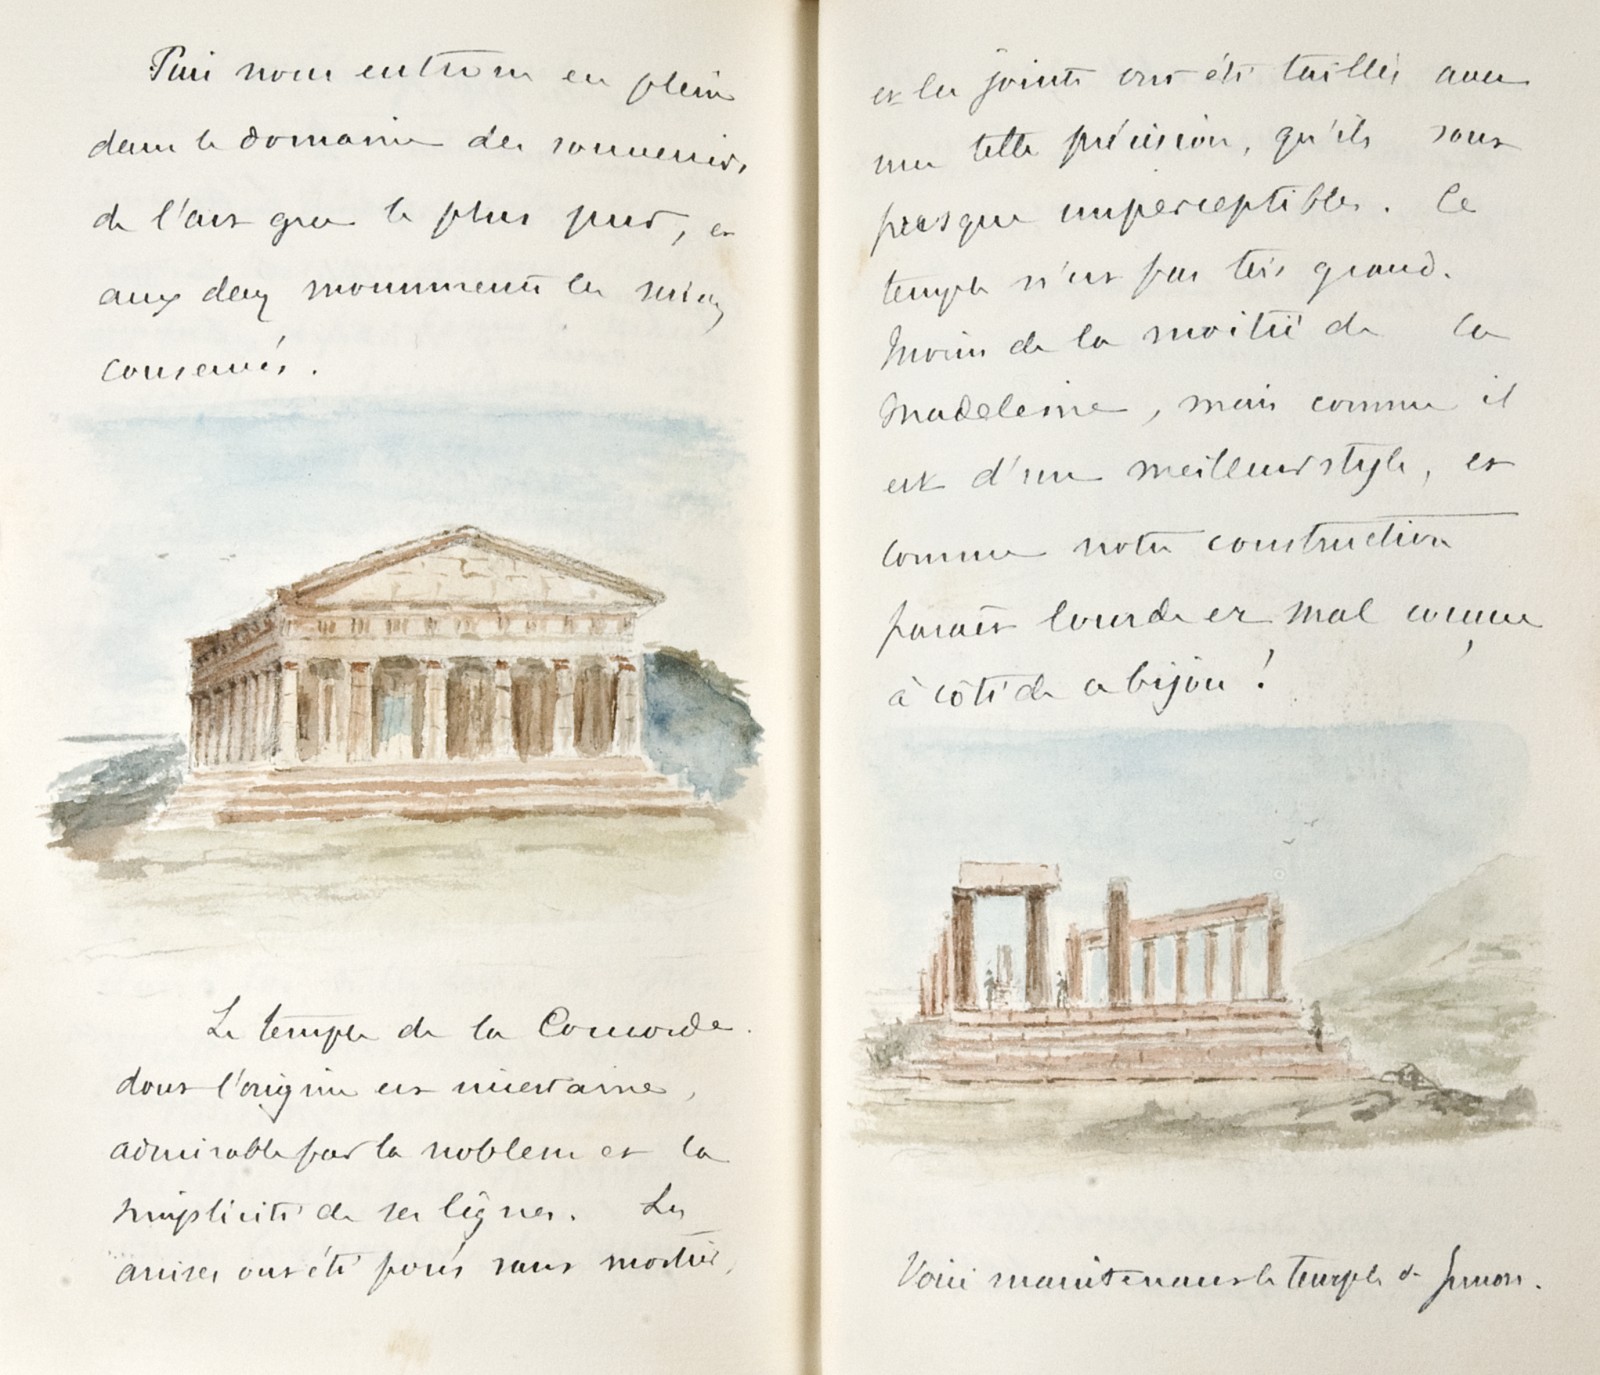 Puis nous entrons en plein
dans le domaine des souvenirs
de l'art grec le plus pur, et
aux deux monuments les mieux
conservés.
Le temple de la Concorde.
dont l'origine est incertaine,
admirable par la noblesse et la
simplicité de ses lignes. Les
assises ont été posés sans mortier,
et les joints ont été taillés avec
une telle précision, qu'ils sont
presque imperceptibles. Ce
temple n'est pas très grand.
Moins de la moitié de la
Madeleine, mais comme il
est d'un meilleur style, et
comme notre construction
parait lourde et mal conçue
à côté de ce bijou !
Voici maintenant le temple de Junon.